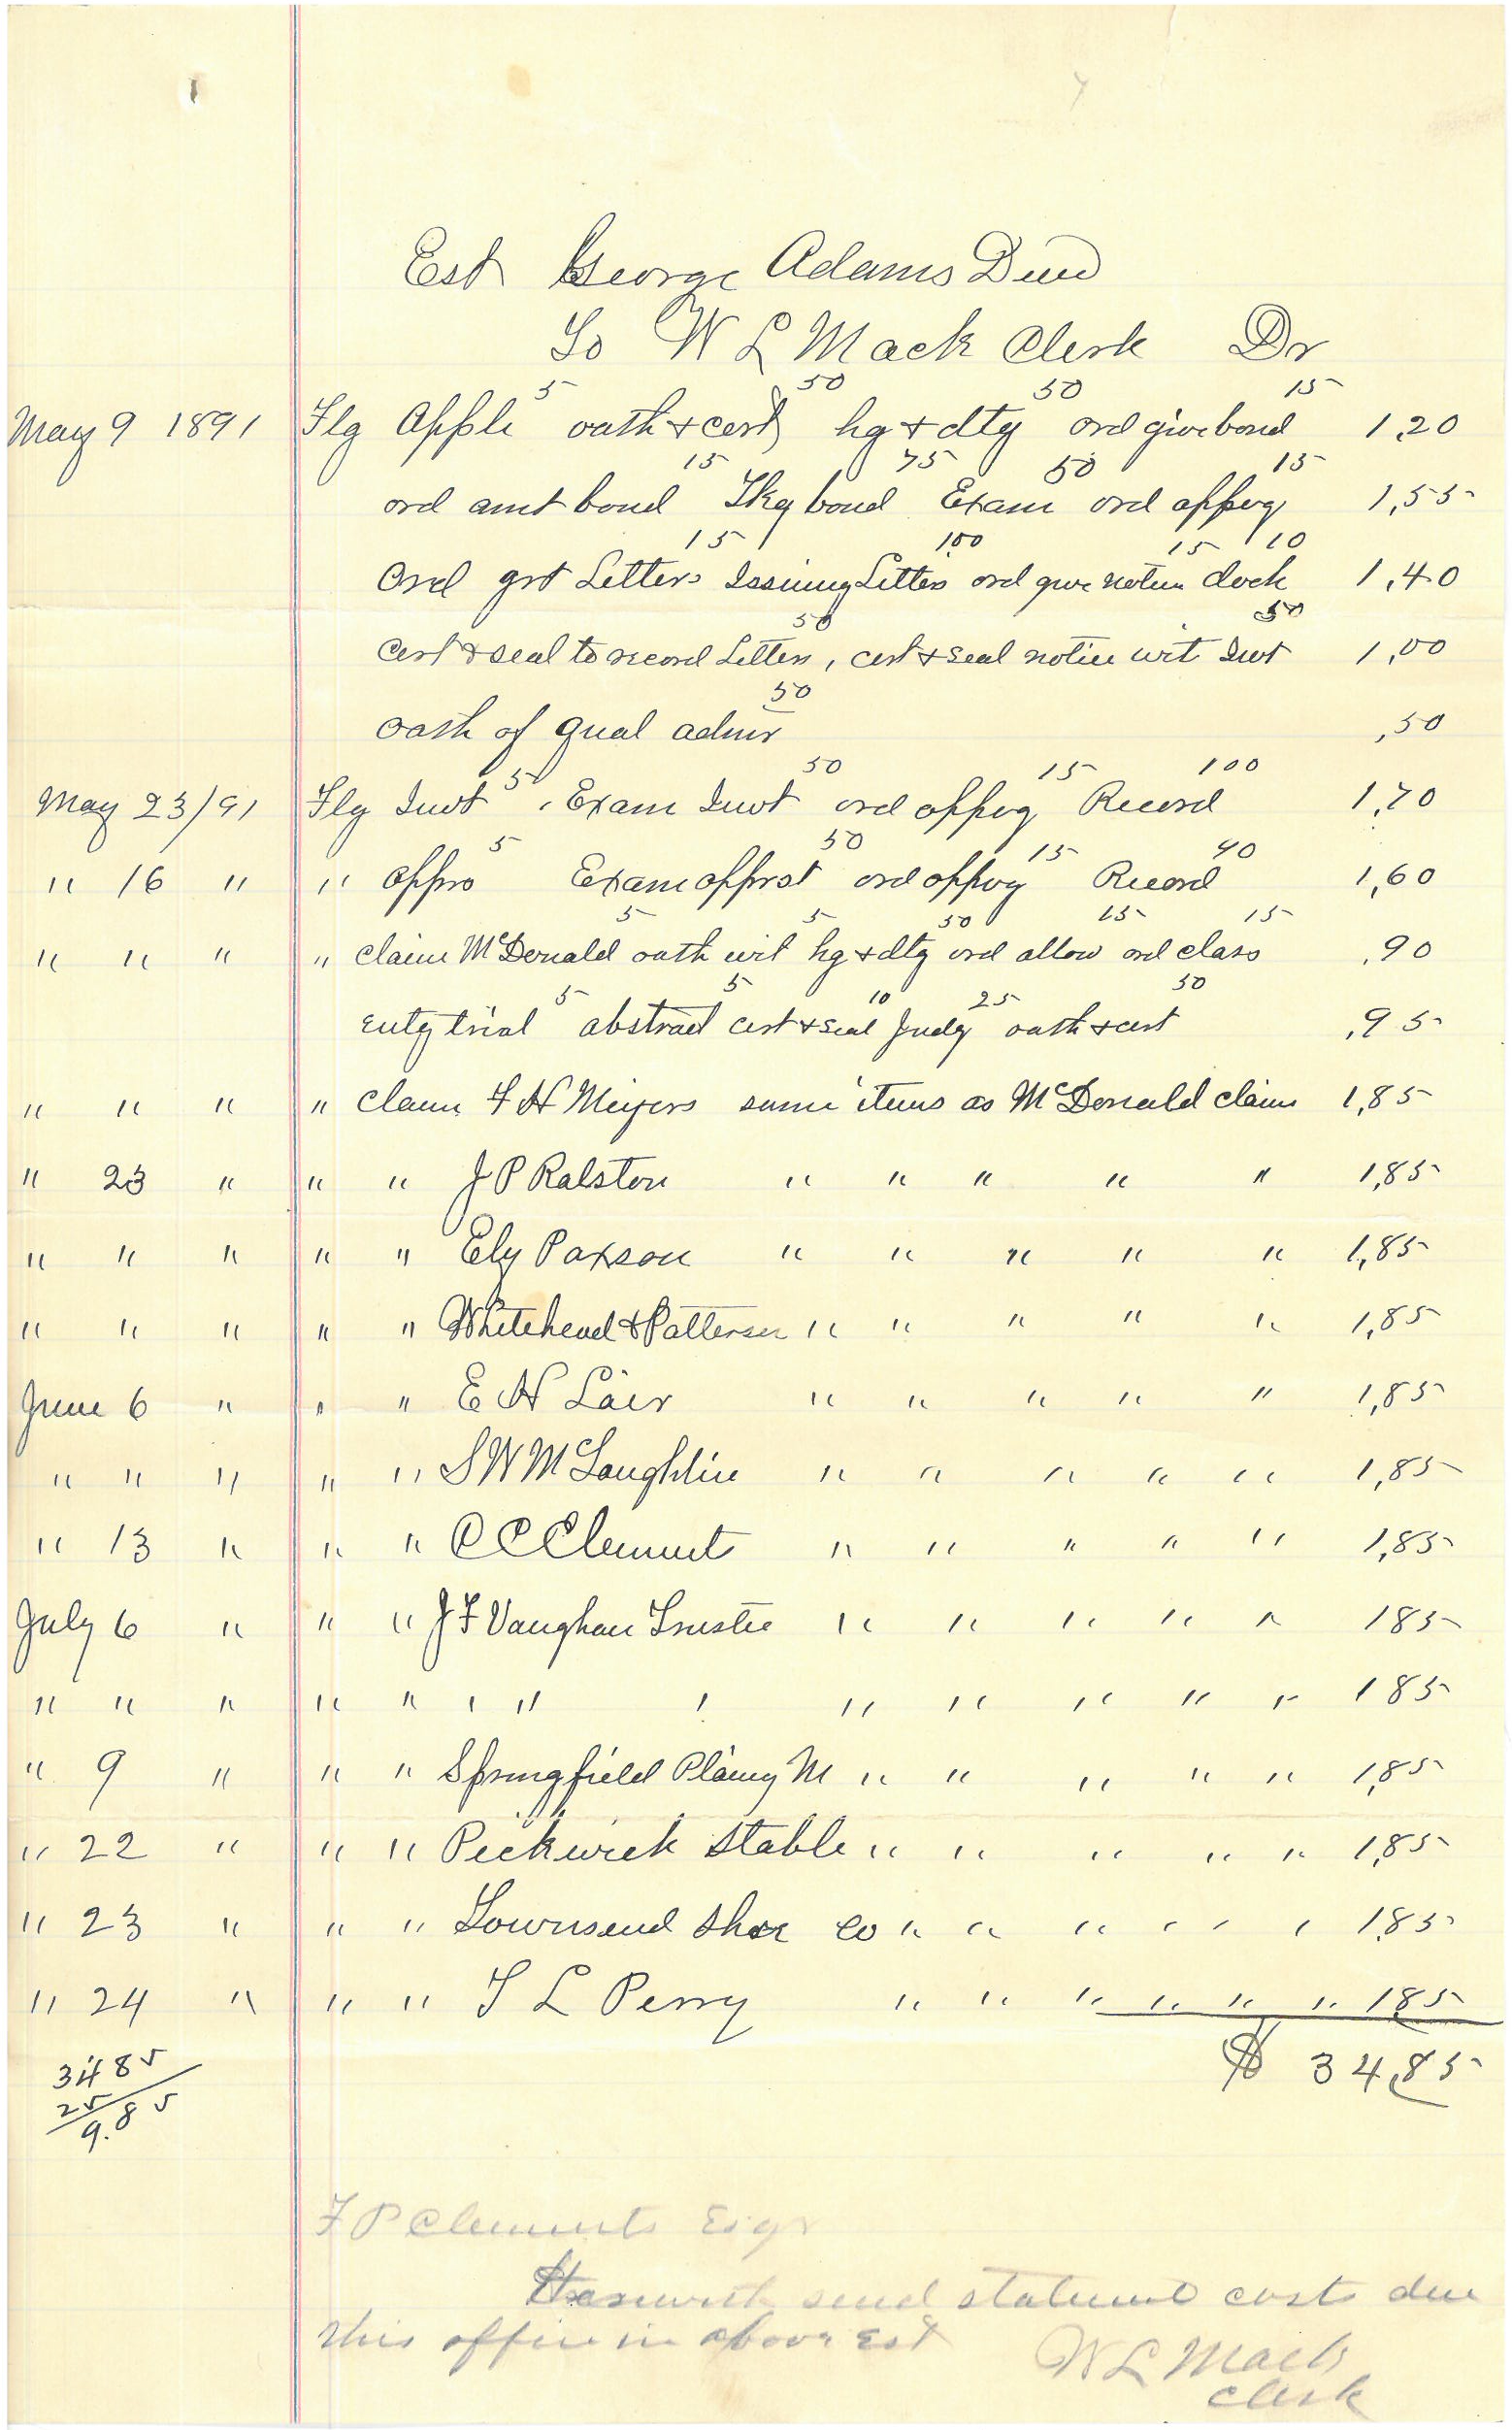 Est George Adams Decd
To W L Mack Clerk Dr
5 50 50 15
May 9 1891 Flg Appli oath & cert hg & dtg ord give bond 1,20
15 75 50 15
ord amt bond Tkg bond Exam ord appvg 1,55
15 100 15 10
Ord grt Letters Issuing Letters ord give notice dock 1,40
50 50
cert & seal to record Letters, cert & seal notice wit Invt 1,00
50
oath of qual admr ,50
5 50 15 100
May 23/91 Flg Invt, Exam Invt ord appvg Record 1,70
5 50 15 90
" 16 " " appro Exam apprst ord appvg Record 1,60
5 5 50 15 15
" " " " claim McDonald oath wit hg & dtg ord allow ord class ,90
5 5 10 25 50
entg trial abstract cert & seal Judg oath & cert ,95
" " " " claim F H Meyers same items as McDonald claim 1,85
" 23 " " " J P Ralston " " " " " 1,85
" " " " " Ely Paxson " " " " " 1,85
" " " " " Whitehead & Patterson " " " " " 1,85
June 6 " " " E H Lair " " " " " 1,85
" " " " " S W McLaughlin " " " " " 1,85
" 13 " " " C C Clement " " " " " 1,85
July 6 " " " J F Vaughan Trustee " " " " " 185
" " " " " " " " " " " " 185
" 9 " " " Springfield Plaing M " " " " " 1,85
" 22 " " " Pickwick Stable " " " " " 1,85
" 23 " " " Townsend Shoe Co " " " " " " 1,85
" 24 " " " T L Perry " " " " " " 185
$ 34,85
34 85
25
9.85
F P Clements Esqr
Herewith send statement costs due
this office in above Est
W L Mack
Clerk